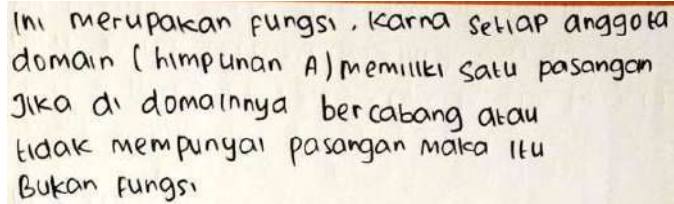 Ini merupakan fungsi. Karna setiap anggota
domain (himpunan A) memiliki satu pasangan
Jika di domainnya bercabang atau
tidak mempunyai pasangan maka itu
Bukan fungsi